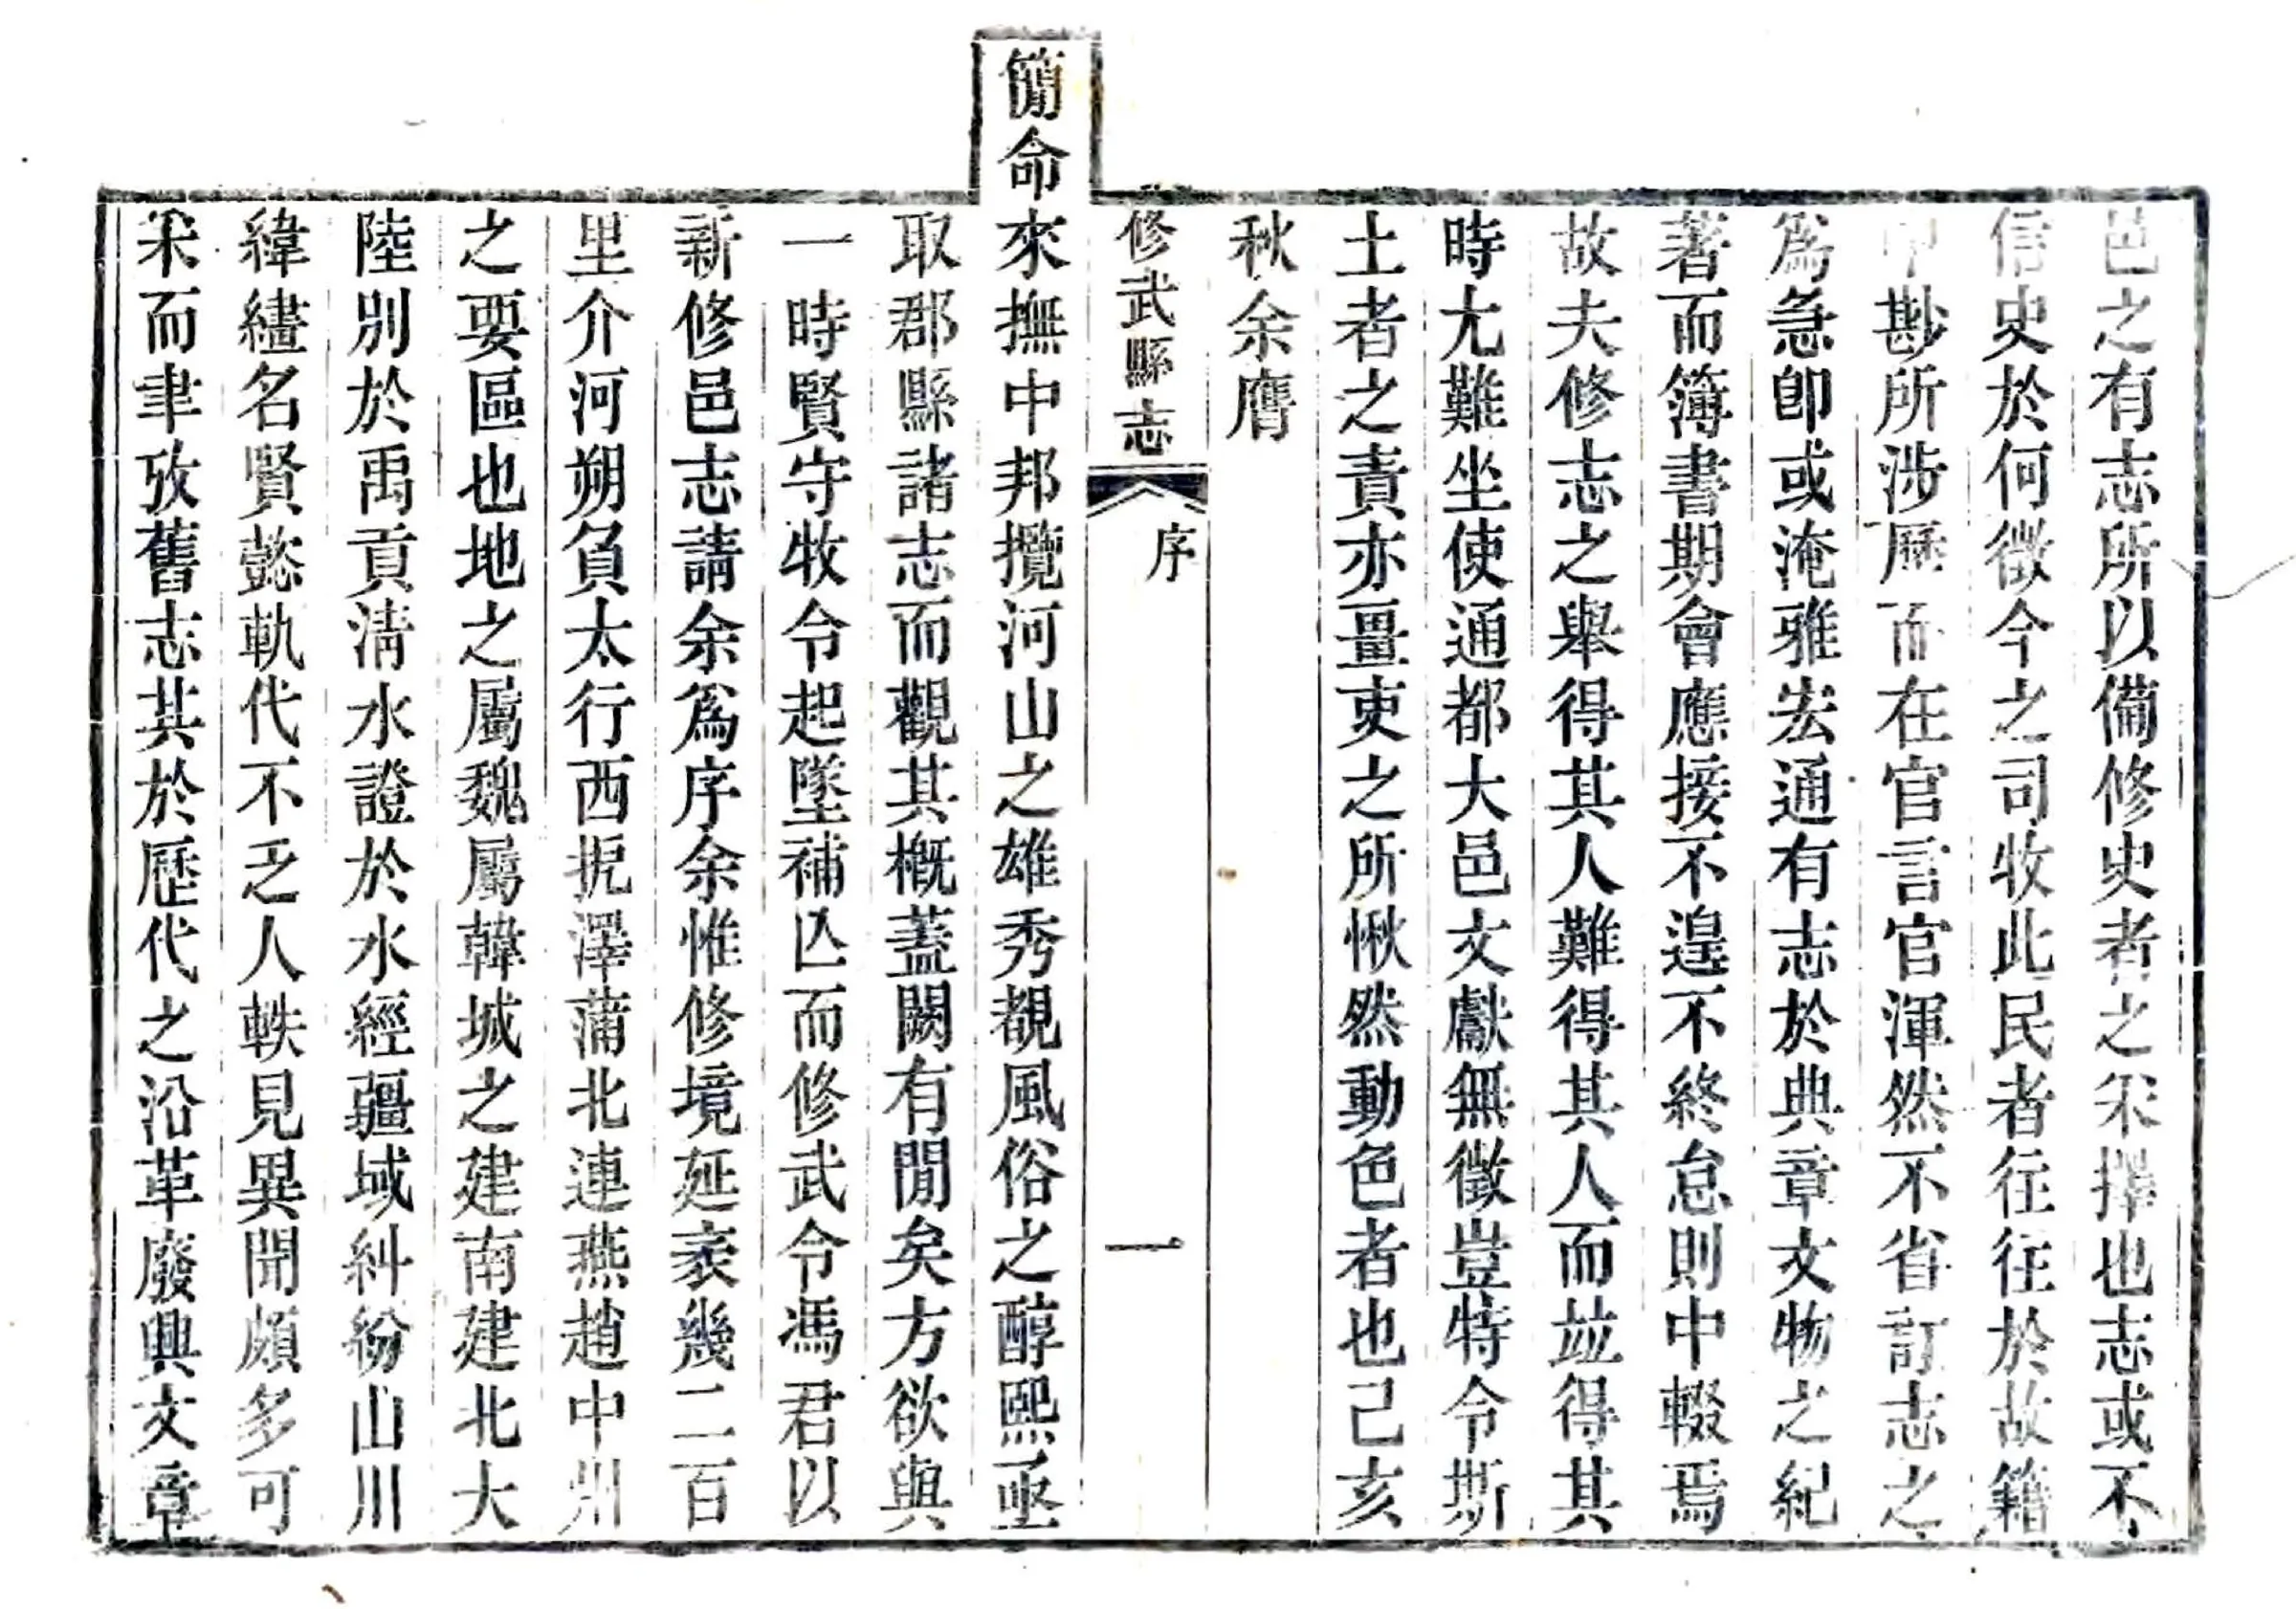 邑之有志所以備修史者之采擇也志或不
信史於何徵今之司牧此民者往往於故籍
勘所涉歷而在官言官渾然不省訂志之
爲急卽或淹雅宏通有志於典章文物之紀
著而簿書期會應接不遑不終怠則中輟焉
故夫修志之舉得其人難得其人而竝得其
時尤難坐使通都大邑文獻無徵豈特令斯
土者之責亦畺吏之所愀然動色者也己亥
秋余膺
修武縣志
序
一
簡命來撫中邦攬河山之雄秀覩風俗之醇熙亟
取郡縣諸志而觀其槪蓋闕有閒矣方欲與
一時賢守牧令起墜補亾而修武令馮君以
新修邑志請余爲序余惟修境延袤幾二百
里介河朔負太行西扼澤蒲北連燕趙中州
之要區也地之屬魏屬韓城之建南建北大
陸別於禹貢淸水證於水經疆域糾紛山川
緯繣名賢懿軌代不乏人軼見異聞頗多可
采而聿攷舊志其於歷代之沿革廢興文章